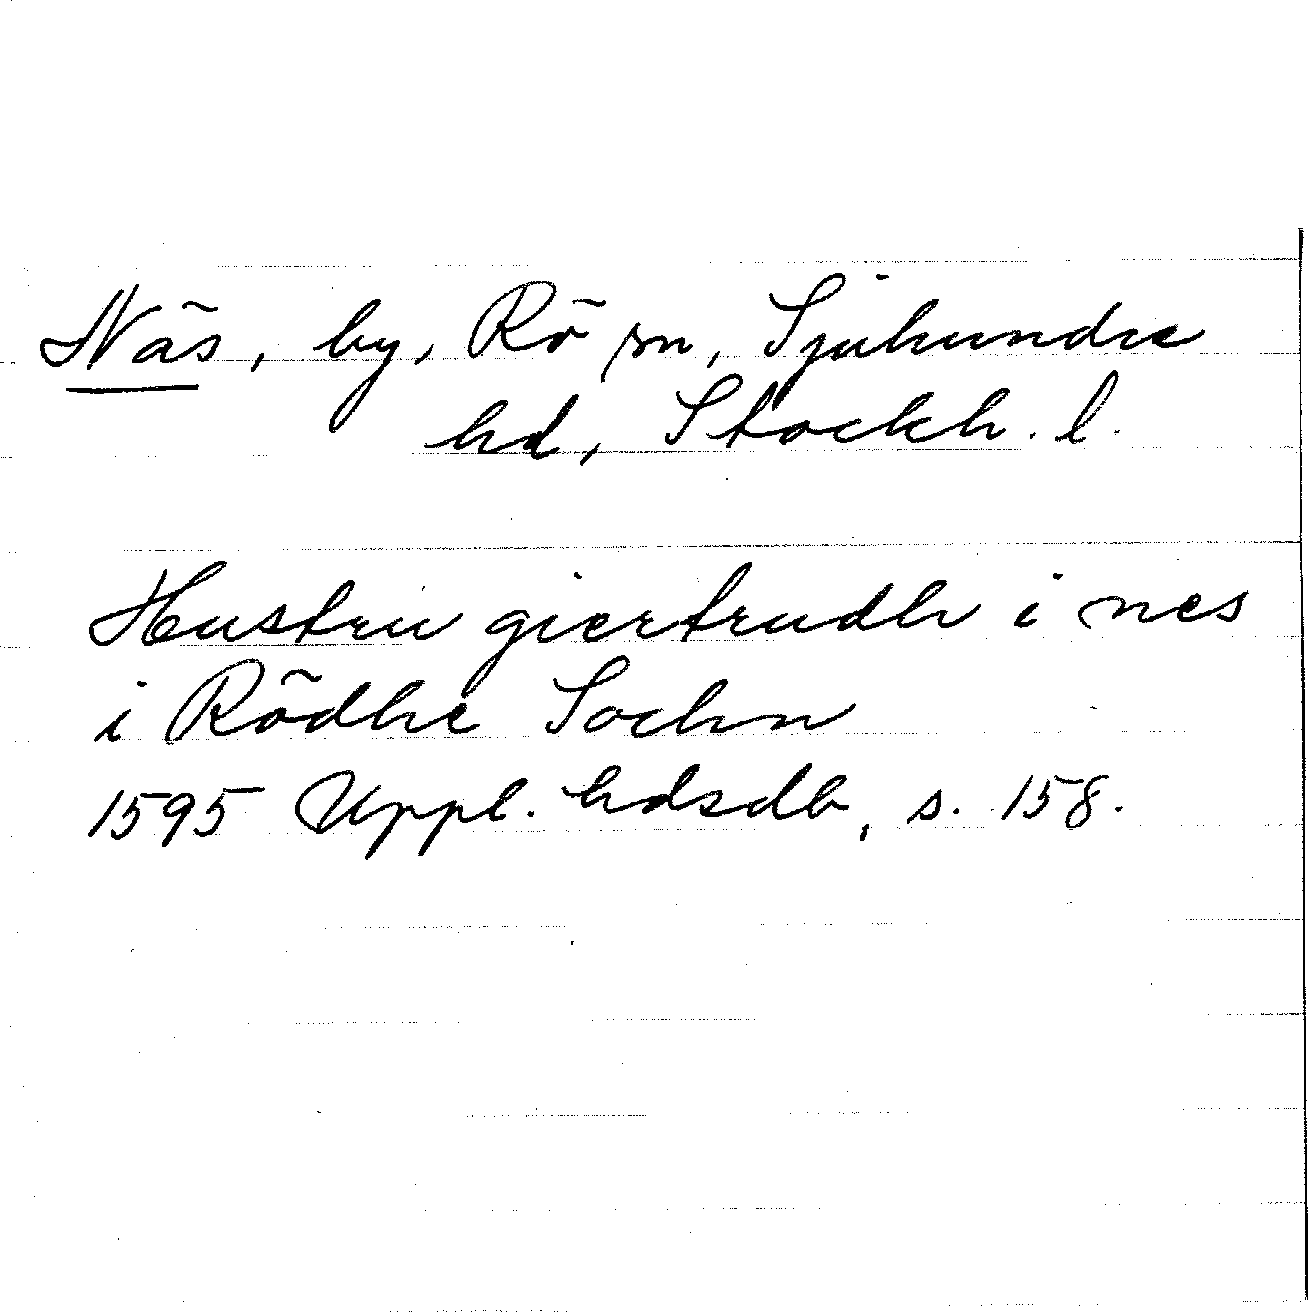 Näs, by, Rö sn, Sjuhundra
hd, Stockh. l.
Hustru giertrudh i nes
i Rödhe Sochn
1595 Uppl. hdsdb, s. 158.